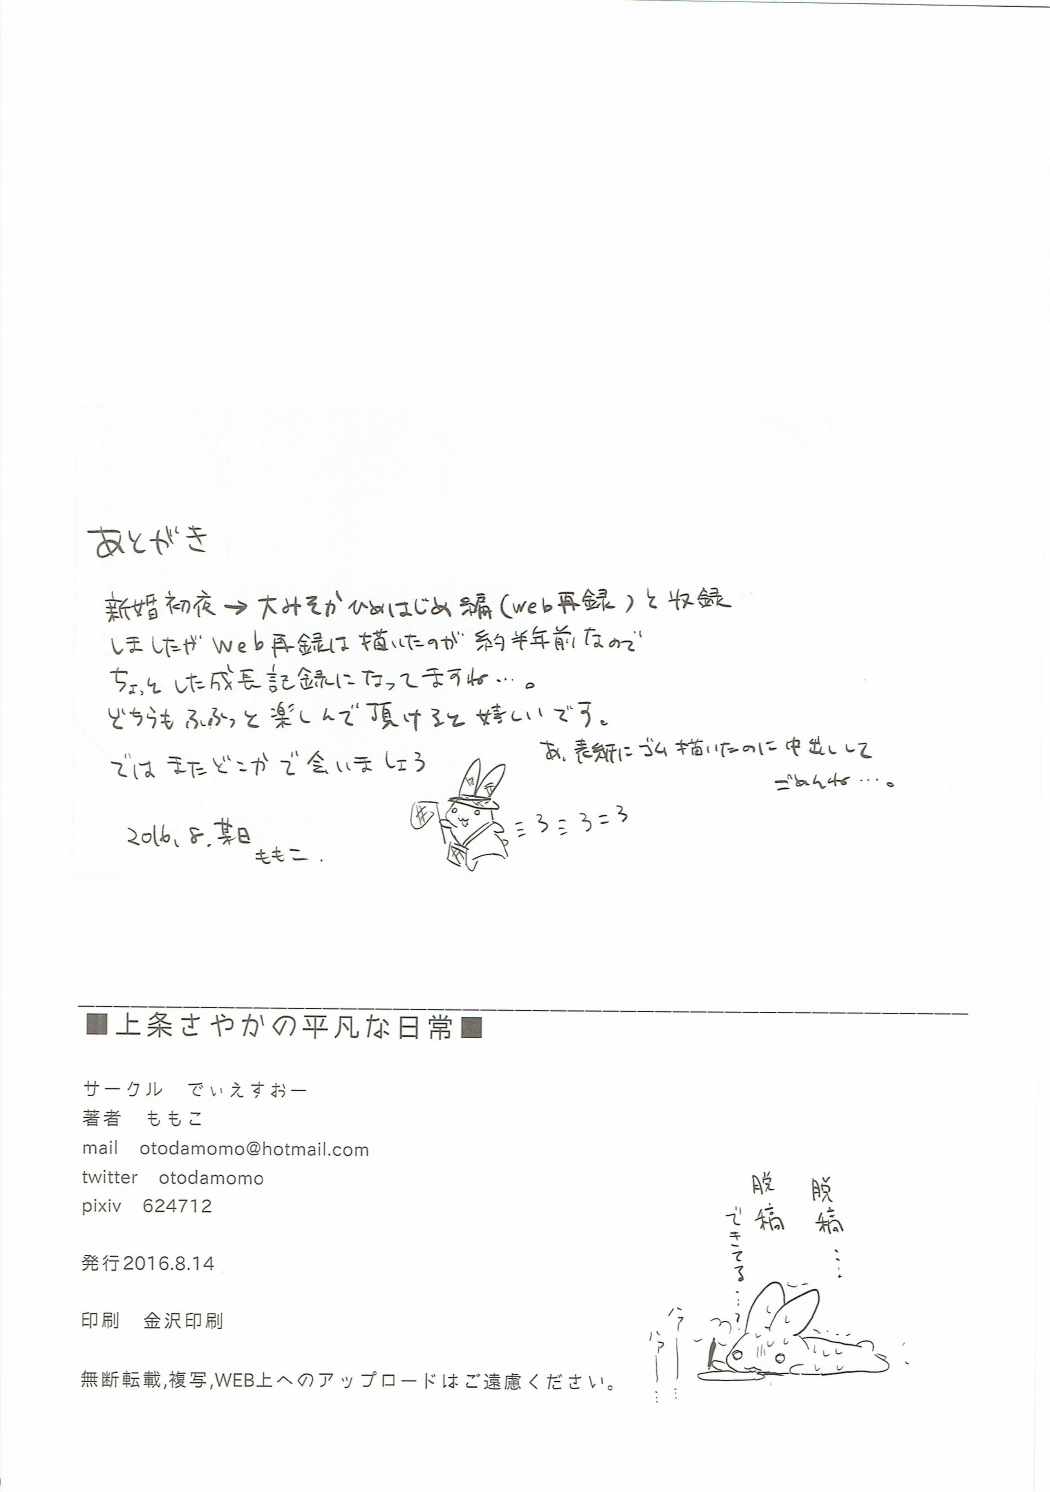 あとがき
新婚初夜→大みそかひめはじめ編(web再録)と収録
しましたがweb再録は描いたのが約半年前なので
ちょっとした成長記録になってますね…。
どちらもふふっと楽しんで頂けると嬉しいです。
ではまたどこかで会いましょろ
あ、表紙にゴム描いたのに中出しして
ごめんね…。
2016.8.某日
ももこ.
■上条さやかの平凡な日常■
サークル でぃえすおー
著者 ももこ
mail otodamomo@hotmail.com
twitter otodamomo
pixiv 624712
発行2016.8.14
印刷 金沢印刷
無断転載,複写,WEB上へのアップロードはご遠慮ください。
脱稿…
脱稿
できてる…?